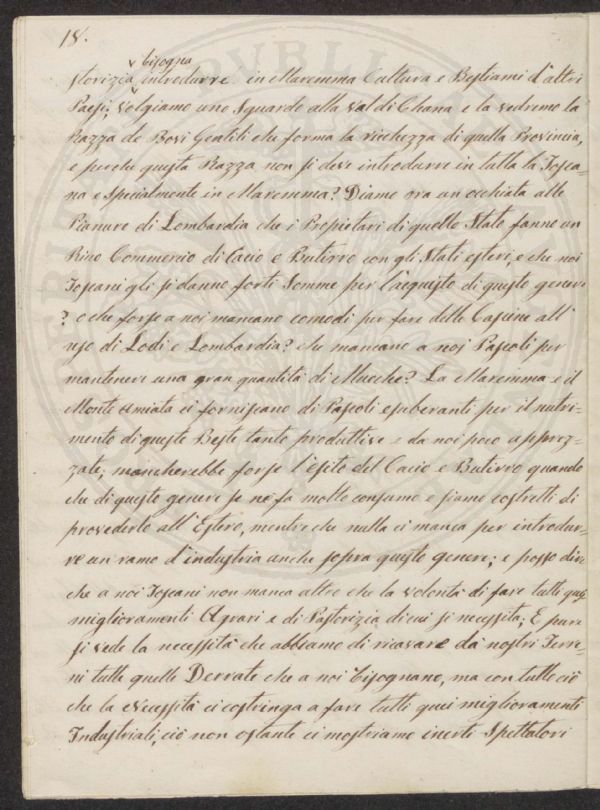 18.
bisogna
storizia, introdurre in Maremma Cultura e Bestiami d'altri
Paesi; Volgiamo uno Sguardo alla Val di Chiana e la vedremo la
Razza de Bovi Gentili che forma la ricchezza di quella Provincia,
e perche questa Razza non si deve introdurre in tutta la Tosca-
na e Specialmente in Maremma? Diamo ora un occhiata alle
Pianure di Lombardia che i Propietari di quello Stato fanno un
Rico Commercio di Cacio e Butirro con gli Stati esteri, e che noi
Toscani gli si danno forti Somme per l'acquisto di questo genere
? o che forse a noi mancano comodi per fare delle Cascine all'
uso di Lodi e Lombardia? che mancano a noi Pascoli per
mantenere una gran quantità di Mucche? La Maremma e il
Monte Amiata ci forniscano di Pascoli esuberanti per il nutri-
mento di queste Bestie tanto produttive e da noi poco apprez-
zate; mancherebbe forse l'esito del Cacio e Butirro quando
che di questo genere se ne fa molto consumo e siamo costretti di
provederlo all'Estero, mentre che nulla ci manca per introdur-
re un ramo d'industria anche sopra questo genere; e posso dire
che a noi Toscani non manca altro che la volontà di fare tutti quei
miglioramenti Agrari e di Pastorizia di cui si necessita; E pure
si vede la necessità che abbiamo di ricavare da nostri Terre-
ni tutte quelle Derrate che a noi bisognano, ma con tutto ciò
che la Necessità ci costringa a fare tutti quei miglioramenti
Industriali, ciò non ostante ci mostriamo inerti Spettatori